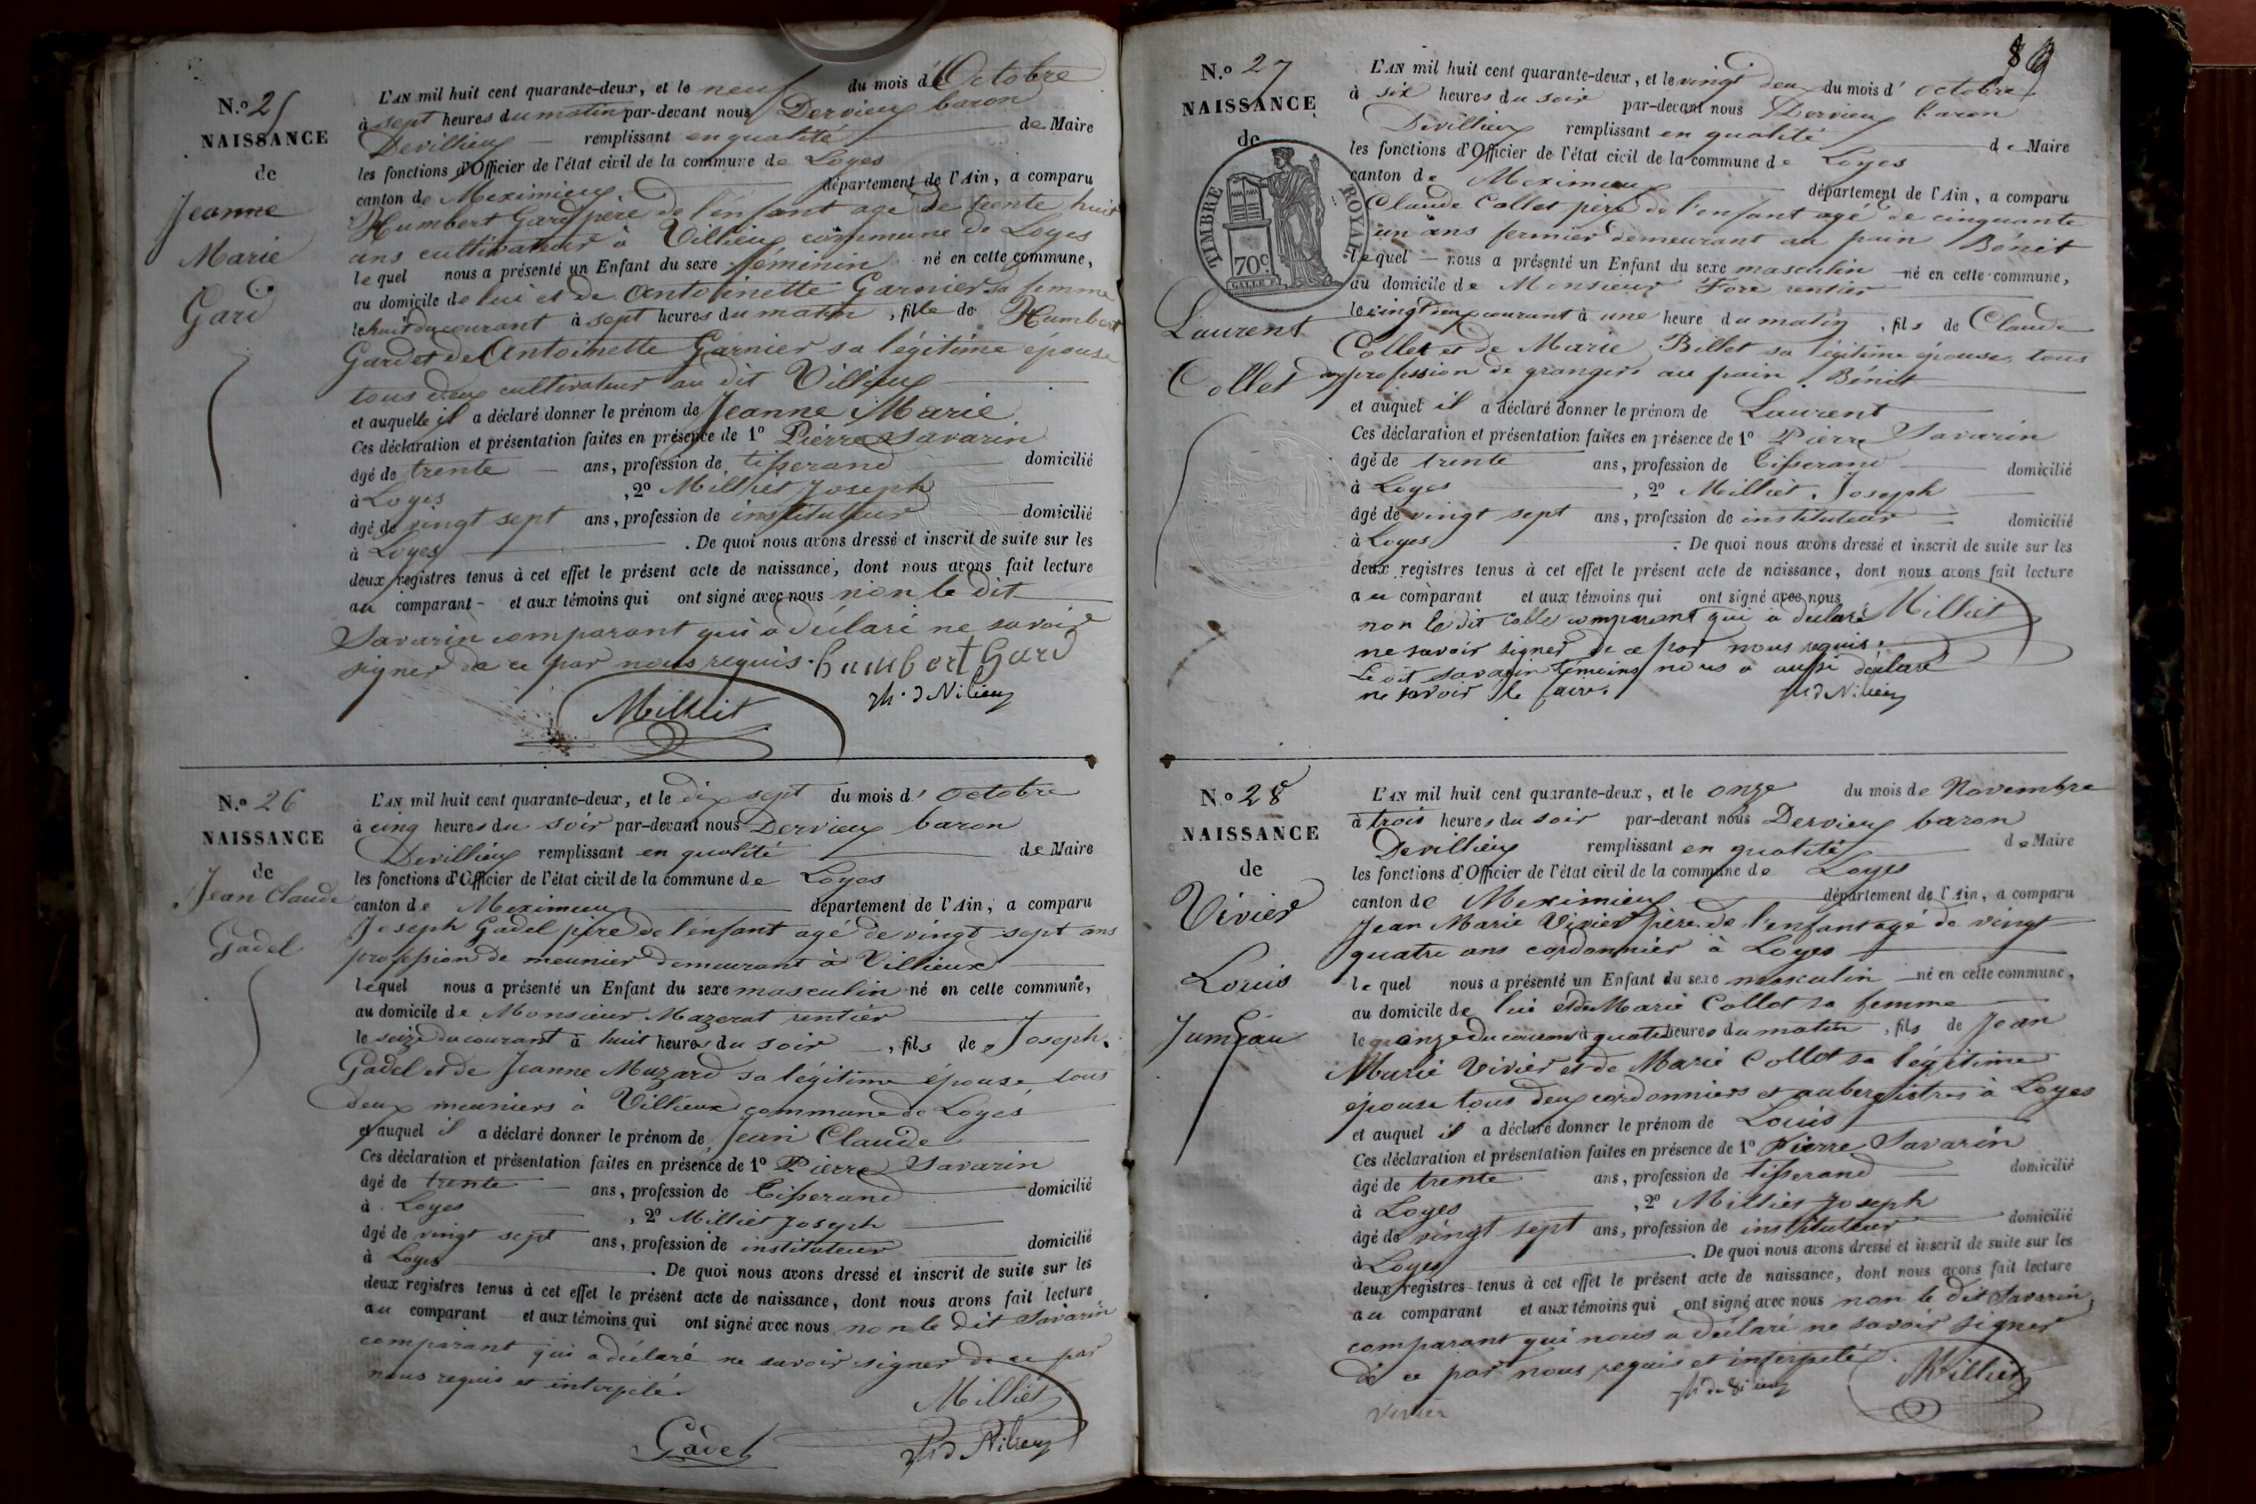 N.o 25
NAISSANCE
de
Jeanne
Marie
Gard
L'AN mil huit cent quarante-deux, et le neuf du mois d'Octobre
à sept heures du matin par-devant nous Dervieux baron
Devillieux remplissant en qualité de Maire
les fonctions d'Officier de l'état civil de la commune de Loyes
canton de Meximieux département de l'Ain, a comparu
Humbert Gard père de l'enfant agé de trente huit
ans cultivateur à Villieux commune de Loyes
lequel nous a présenté un Enfant du sexe feminin né en cette commune,
au domicile de lui et de Antoinette Garnier sa femme
le huit du courant à sept heures du matin, fille de Humbert
Gard et de Antoinette Garnier sa légitime épouse
tous deux cultivateur au dit Villieux
et auquelle il a déclaré donner le prénom de Jeanne Marie
Ces déclaration et présentation faites en présence de 1o Pierre Savarin
âgé de trente ans, profession de tisserand domicilié
à Loyes, 2o Milliet Joseph
âgé de vingt sept ans, profession de instituteur domicilié
à Loyes. De quoi nous avons dressé et inscrit de suite sur les
deux registres tenus à cet effet le présent acte de naissance, dont nous avons fait lecture
au comparant et aux témoins qui ont signé avec nous non le dit
Savarin comparant qui a déclaré ne savoir
signer de ce par nous requis. humbert Gard
Milliet
N.o 26
NAISSANCE
de
Jean Claude
Gadel
L'AN mil huit cent quarante-deux, et le dix sept du mois d'octobre
à cinq heures du soir par-devant nous Dervieux baron
Devillieux remplissant en qualité de Maire
les fonctions d'Officier de l'état civil de la commune de Loyes
canton de Meximieux département de l'Ain, a comparu
Joseph Gadel père de l'enfant agé de vingt sept ans
profession de meunier demeurant à Villieux
lequel nous a présenté un Enfant du sexe masculin né en cette commune,
au domicile de Monsieur Mazerat rentier
le seize du courant à huit heures du soir, fils de Joseph
Gadel et de Jeanne Muzard sa légitime épouse tous
deux meuniers à Villieux commune de Loyes
et auquel il a déclaré donner le prénom de Jean Claude
Ces déclaration et présentation faites en présence de 1o Pierre Savarin
âgé de trente ans, profession de tisserand domicilié
à Loyes, 2o Milliet Joseph
âgé de vingt sept ans, profession de instituteur domicilié
à Loyes. De quoi nous avons dressé et inscrit de suite sur les
deux registres tenus à cet effet le présent acte de naissance, dont nous avons fait lecture
au comparant et aux témoins qui ont signé avec nous non le dit Savarin
comparant qui a déclaré ne savoir signer de ce par
nous requis et interpelé.
Milliet
Gadel
N.o 27
NAISSANCE
de
TIMBRE ROYAL
70c
Laurent
Collet
L'AN mil huit cent quarante-deux, et le vingt deux du mois d'octobre
à six heures du soir par-devant nous Dervieux baron
Devillieux remplissant en qualité de Maire
les fonctions d'Officier de l'état civil de la commune de Loyes
canton de Meximieux département de l'Ain, a comparu
Claude Collet père de l'enfant agé de cinquante
un ans fermier demeurant au pain Bénit
lequel nous a présenté un Enfant du sexe masculin né en cette commune,
au domicile de Monsieur Fore rentier
le vingt deux courant à une heure du matin, fils de Claude
Collet et de Marie Billet sa légitime épouse, tous
profession de grangers au pain Bénit
et auquel il a déclaré donner le prénom de Laurent
Ces déclaration et présentation faites en présence de 1o Pierre Savarin
âgé de trente ans, profession de tisserand domicilié
à Loyes, 2o Milliet, Joseph
âgé de vingt sept ans, profession de instituteur domicilié
à Loyes. De quoi nous avons dressé et inscrit de suite sur les
deux registres tenus à cet effet le présent acte de naissance, dont nous avons fait lecture
au comparant et aux témoins qui ont signé avec nous
non le dit Collet comparant qui a déclaré Milliet
ne savoir signer de ce par nous requis.
Le dit Savarin témoins nous a aussi déclaré
ne savoir le faire.
N.o 28
NAISSANCE
de
Vivier
Louis
Jumeau
L'AN mil huit cent quarante-deux, et le onze du mois de Novembre
à trois heures du soir par-devant nous Dervieux baron
Devillieux remplissant en qualité de Maire
les fonctions d'Officier de l'état civil de la commune de Loyes
canton de Meximieux département de l'Ain, a comparu
Jean Marie Vivier père de l'enfant agé de vingt
quatre ans cordonnier à Loyes
lequel nous a présenté un Enfant du sexe masculin né en cette commune,
au domicile de lui et de Marie Collet sa femme
le onze du courant à quatre heures du matin, fils de Jean
Marie Vivier et de Marie Collet sa légitime
épouse tous deux cordonniers et aubergistres à Loyes
et auquel il a déclaré donner le prénom de Louis
Ces déclaration et présentation faites en présence de 1o Pierre Savarin
âgé de trente ans, profession de tisserand domicilié
à Loyes, 2o Milliet Joseph
âgé de vingt sept ans, profession de instituteur domicilié
à Loyes. De quoi nous avons dressé et inscrit de suite sur les
deux registres tenus à cet effet le présent acte de naissance, dont nous avons fait lecture
au comparant et aux témoins qui ont signé avec nous non le dit Savarin,
comparant qui nous a déclaré ne savoir signer
de ce par nous requis et interpelé.
Milliet
Vivier